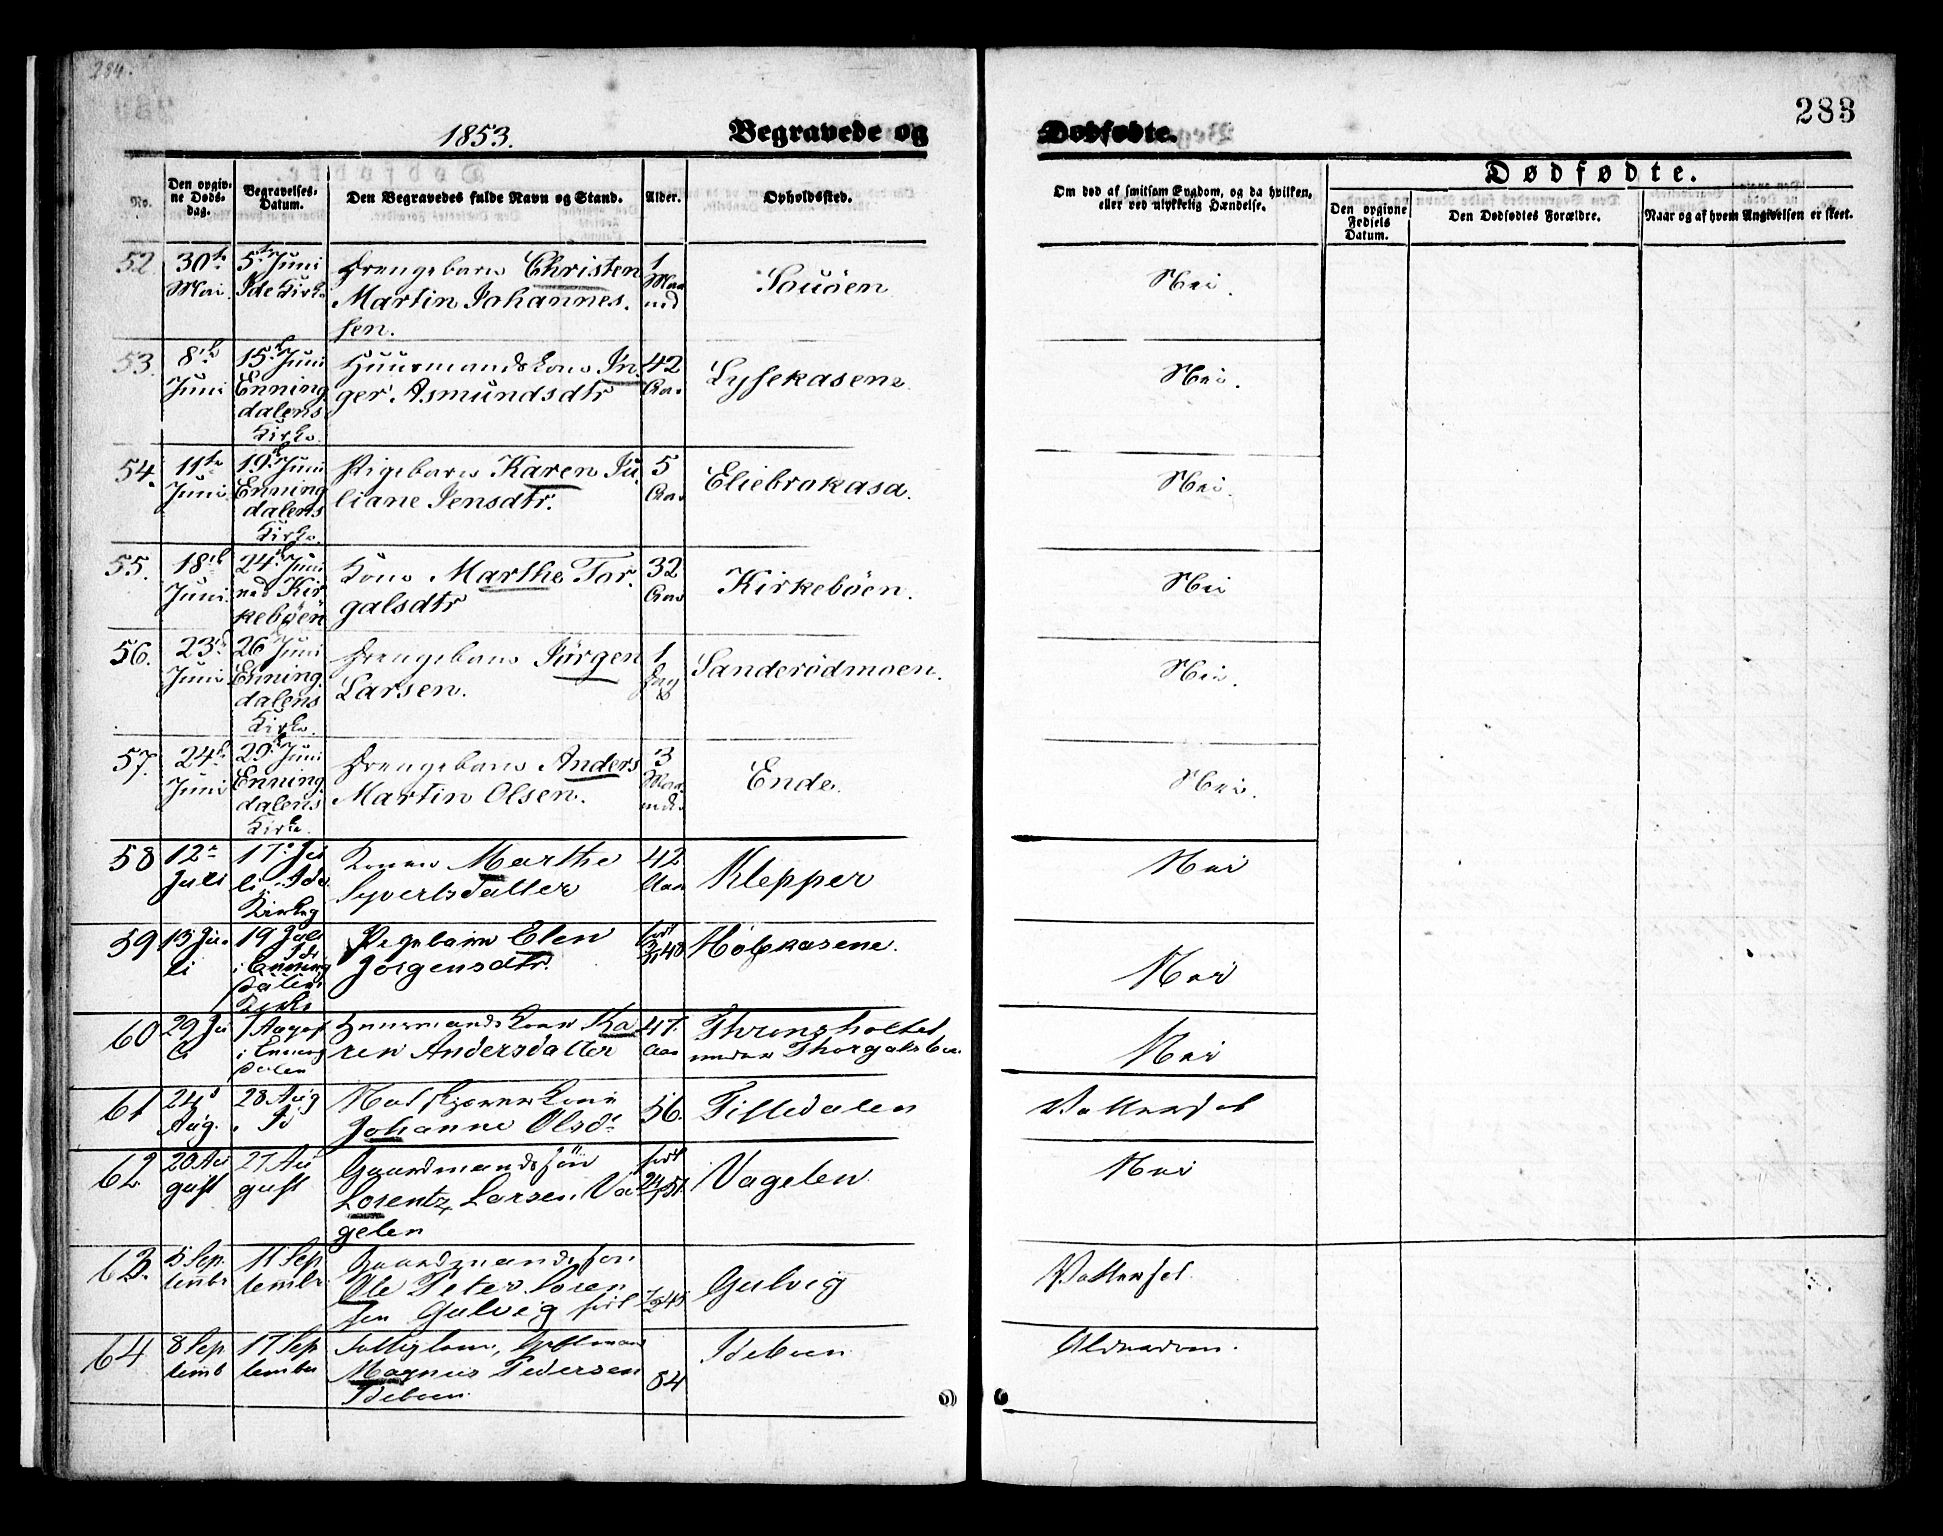 284.
1853.
Begravede og
Dødfødte.
283
No.
Den opgivne Dødsdag.
Begravelses-Datum.
Den Begravedes fulde Navn og Stand.
Alder.
Opholdssted.
Om død af smitsom Sygdom, og da hvilken, eller ved ulykkelig Hændelse.
Dødfødte.
Den opgivne Fødsels Datum.
Den Dødfødtes Forældre.
Naar og af hvem Angivelsen er skeet.
52 30te Mai 5te Juni Ide Kirke Drengebarn Christen Martin Johannessen. 1 Maaned Nei.
53. 8de Juni 15de Juni Enningdalens Kirke. Huusmandskone Inger Asmundsdtr 42 Aar Lysekasene. Nei.
54. 11te Juni 19de Juni Enningdalens Kirke. Pigebarn Karen Juliane Jensdtr. 5 Aar Eliebrokasa. Nei.
55. 18de Juni 24de Juni ved Kirkebøen Kone Marthe Torgalsdtr 32 Aar Kirkebøen. Nei
56. 23de Juni 26de Juni Enningdalens Kirke. Drengebarn Jörgen Larsen. 1 Dag Sanderödmoen. Nei.
57. 24de Juni 29de Juni Enningdalens Kirke. Drengebarn Anders Martin Olsen. 3 Maaneder Ende. Nei.
58 12te Juli 17de Juli Ide Kirke Konen Marthe Syvertsdatter 42 Aar Klepper Nei
59 13 Juli 19 Juli i Enningdalens Kirke Pigebarn Elen Jörgensdtr. født 48 Hølekasene. Nei
60 29 Juli 7 August i Enningdalen Huusmandskone Karen Andersdatter 47. Aar under Nei
61 24d Aug. 28 Aug i Id Johanne Olsdr 56. Tilledalen Vattersot
62 20 August 27 August Gaardmandssön Lorentz Larsen Vagelen født 51 Vagelen Nei
63. 5 September 11 September Gaardmandsson Ole Peter Sorensen Gulvig født 45 Gulvig Vattersot.
64 8 Septemb 17 September Magnus Pedersen Ideboen 84 Ideboen Alderdom.